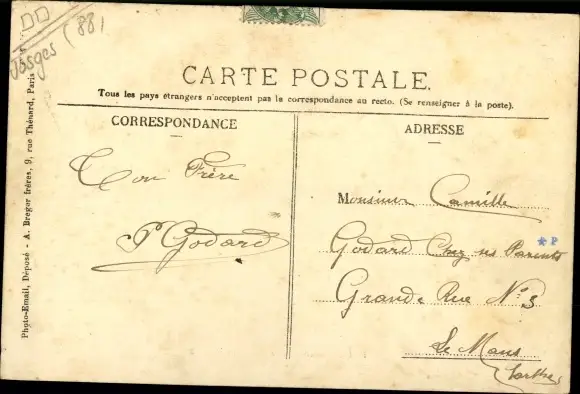 Vosges (88)
CARTE POSTALE.
Tous les pays étrangers n'acceptent pas la correspondance au recto. (Se renseigner à la poste).
CORRESPONDANCE
ADRESSE
Ton Frère
P Godard
Monsieur Camille
Godard Chez ses Parents
* P
Grande Rue N° 3
Le Mans
Sarthe
Photo-Email, Déposé - A. Breger frères, 9, rue Thénard, Paris